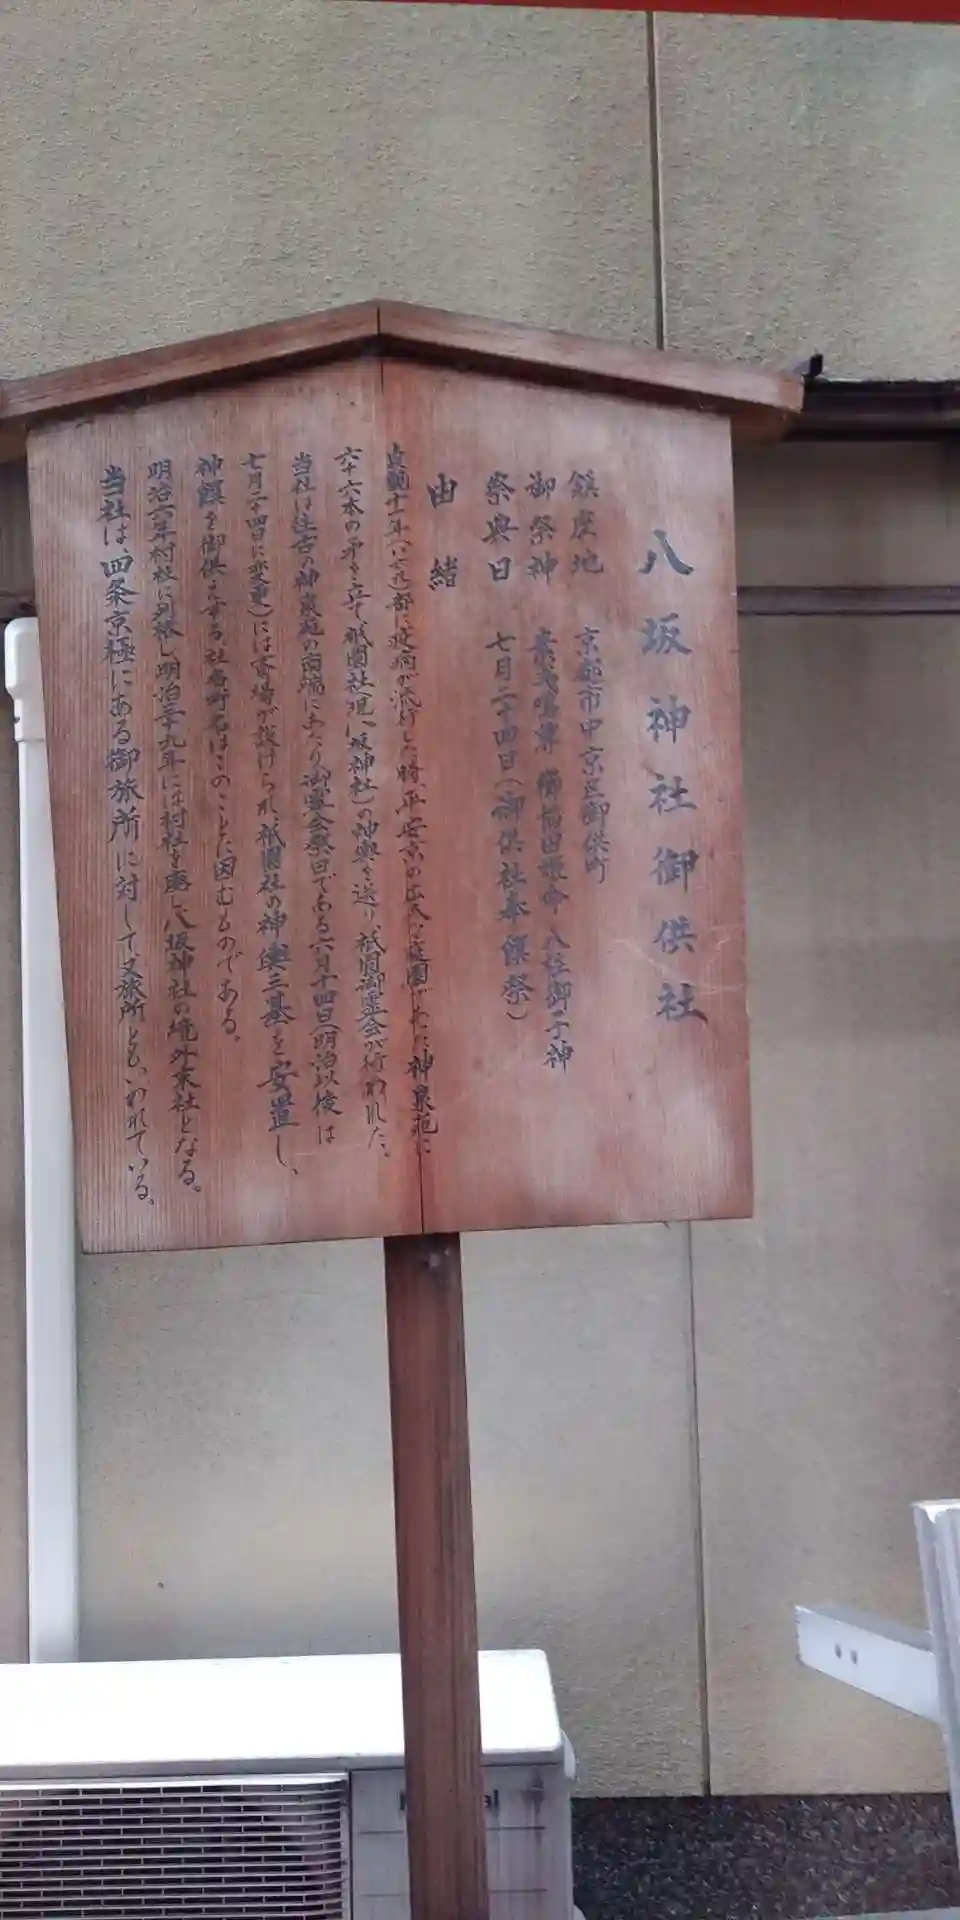 八坂神社御供社
鎮座地 京都市中京区御供町
御祭神 素戔嗚尊 櫛稲田姫命 八柱御子神
祭典日 七月二十四日(御供社奉饌祭)
由緒
貞観十一年(八六九)都に疫病が流行した時、平安京の広大な庭園であった神泉苑に
六十六本の矛を立て、祇園社(現八坂神社)の神輿を送り、祇園御霊会が行われた。
当社は往古の神泉苑の南端にあたり御霊会祭日である六月十四日(明治以後は
七月二十四日に変更)には斎場が設けられ、祇園社の神輿三基を安置し、
神饌を御供えする。社名町名はこのことに因むものである。
明治六年村社に列格し明治三十九年には村社を廃し八坂神社の境外末社となる。
当社は、四条京極にある御旅所に対して又旅所ともいわれている。